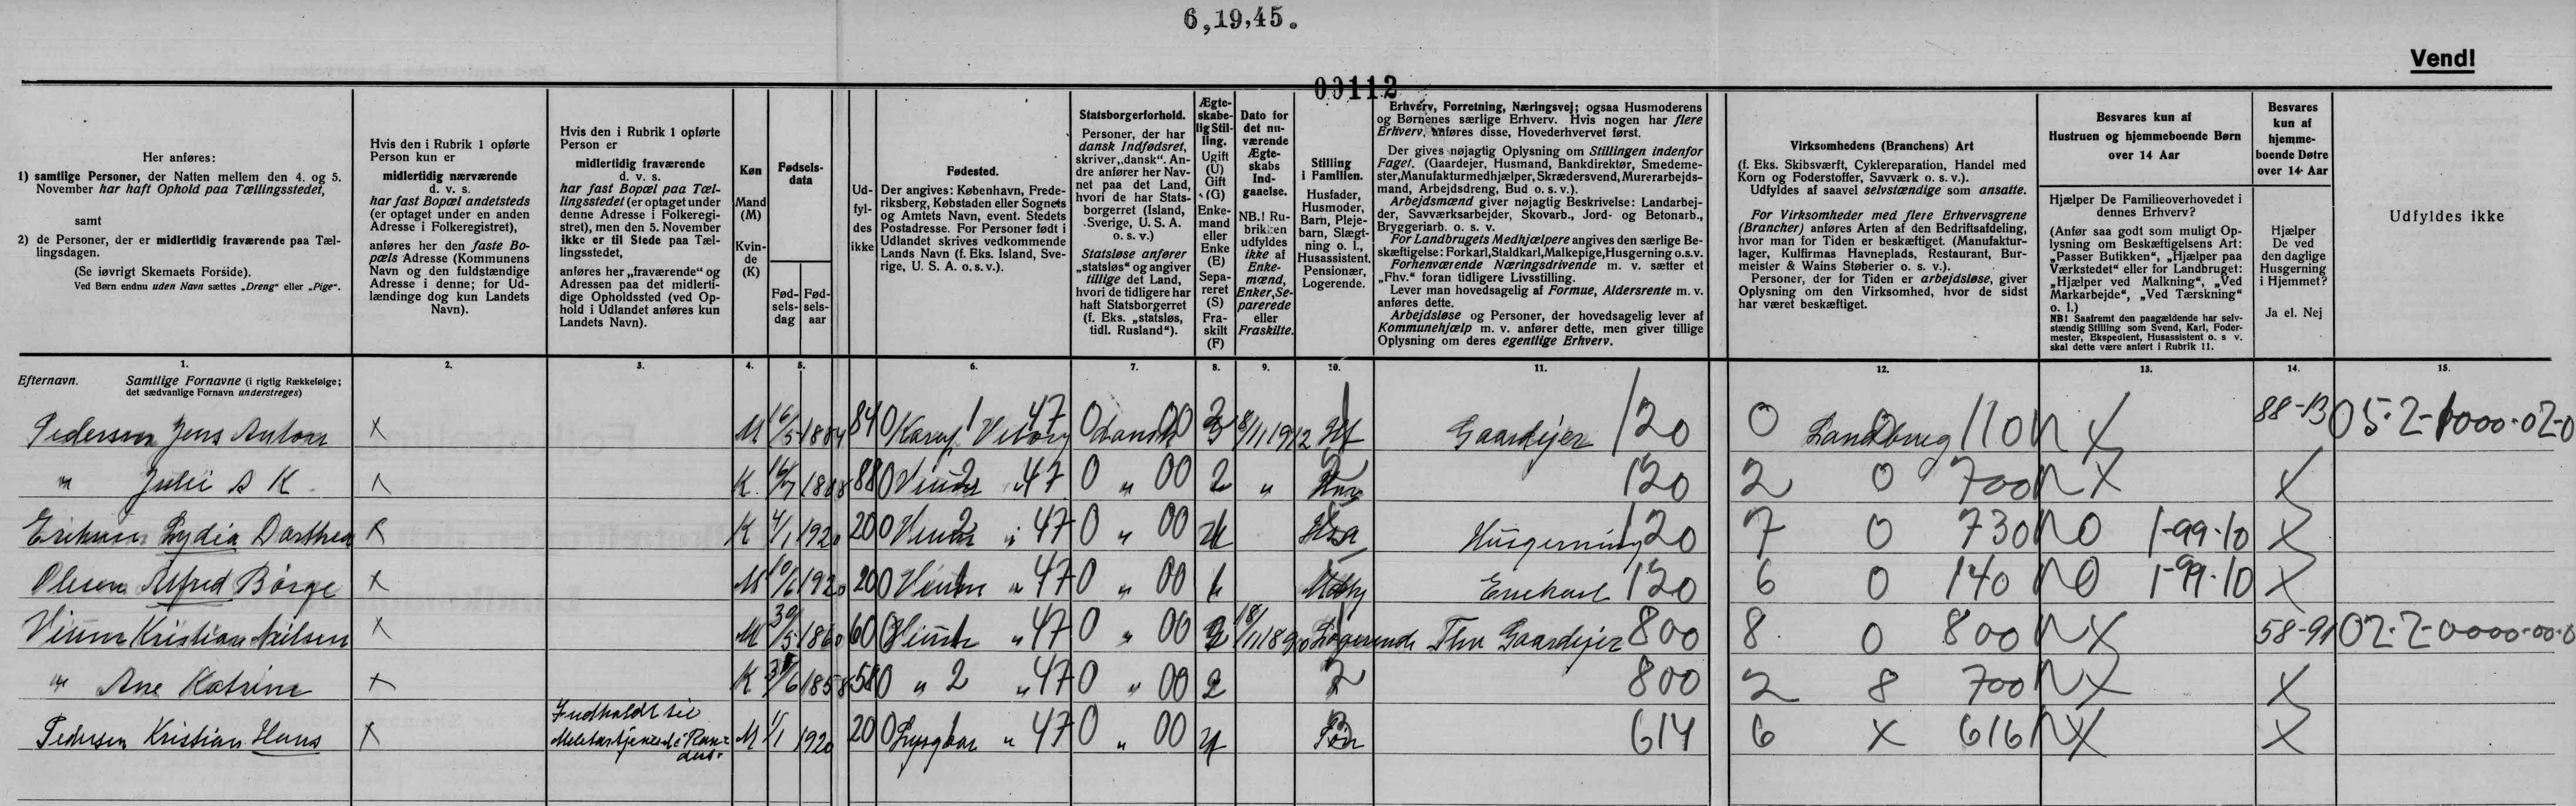 6,19,45.
Vend!
00112
Her anføres:
1) samtlige Personer, der Natten mellem den 4. og 5. November har haft Ophold paa Tællingsstedet,
samt
2) de Personer, der er midlertidig fraværende paa Tællingsdagen.
(Se iøvrigt Skemaets Forside).
Ved Børn endnu uden Navn sættes „Dreng“ eller „Pige“.
Hvis den i Rubrik 1 opførte Person kun er
midlertidig nærværende
d. v. s.
har fast Bopæl andetsteds (er optaget under en anden Adresse i Folkeregistret),
anføres her den faste Bopæls Adresse (Kommunens Navn og den fuldstændige Adresse i denne; for Udlændinge dog kun Landets Navn).
Hvis den i Rubrik 1 opførte Person er
midlertidig fraværende
d. v. s.
har fast Bopæl paa Tællingsstedet (er optaget under denne Adresse i Folkeregistret), men den 5. November ikke er til Stede paa Tællingsstedet,
anføres her „fraværende“ og Adressen paa det midlertidige Opholdssted (ved Ophold i Udlandet anføres kun Landets Navn).
Køn
Mand (M)
Kvinde (K)
Fødselsdata
Fødselsdag
Fødselsaar
Udfyldes ikke
Fødested.
Der angives: København, Frederiksberg, Købstaden eller Sognets og Amtets Navn, event. Stedets Postadresse. For Personer født i Udlandet skrives vedkommende Lands Navn (f. Eks. Island, Sverige, U. S. A. o. s. v.).
Statsborgerforhold.
Personer, der har dansk Indfødsret, skriver „dansk“. Andre anfører her Navnet paa det Land, hvori de har Statsborgerret (Island, Sverige, U. S. A. o. s. v.)
Statsløse anfører „statsløs“ og angiver tillige det Land, hvori de tidligere har haft Statsborgerret (f. Eks. „statsløs, tidl. Rusland“).
Ægteskabelig Stilling.
Ugift (U)
Gift (G)
Enkemand eller Enke (E)
Separeret (S)
Fraskilt (F)
Dato for det nuværende Ægteskabs Indgaaelse.
NB.! Rubrikken udfyldes ikke af Enkemænd, Enker, Separerede eller Fraskilte.
Stilling i Familien.
Husfader, Husmoder, Barn, Plejebarn, Slægtning o. l., Husassistent, Pensionær, Logerende.
Erhverv, Forretning, Næringsvej; ogsaa Husmoderens og Børnenes særlige Erhverv. Hvis nogen har flere Erhverv, anføres disse, Hovederhvervet først.
Der gives nøjagtig Oplysning om Stillingen indenfor Faget. (Gaardejer, Husmand, Bankdirektør, Smedemester, Manufakturmedhjælper, Skrædersvend, Murerarbejdsmand, Arbejdsdreng, Bud o. s. v.).
Arbejdsmænd giver nøjagtig Beskrivelse: Landarbejder, Savværksarbejder, Skovarb., Jord- og Betonarb., Bryggeriarb. o. s. v.
For Landbrugets Medhjælpere angives den særlige Beskæftigelse: Forkarl, Staldkarl, Malkepige, Husgerning o.s.v.
Forhenværende Næringsdrivende m. v. sætter et „Fhv.“ foran tidligere Livsstilling.
Lever man hovedsagelig af Formue, Aldersrente m. v. anføres dette.
Arbejdsløse og Personer, der hovedsagelig lever af Kommunehjælp m. v. anfører dette, men giver tillige Oplysning om deres egentlige Erhverv.
Virksomhedens (Branchens) Art
(f. Eks. Skibsværft, Cyklereparation, Handel med Korn og Foderstoffer, Savværk o. s. v.).
Udfyldes af saavel selvstændige som ansatte.
For Virksomheder med flere Erhvervsgrene (Brancher) anføres Arten af den Bedriftsafdeling, hvor man for Tiden er beskæftiget. (Manufakturlager, Kulfirmas Havneplads, Restaurant, Burmeister & Wains Støberier o. s. v.).
Personer, der for Tiden er arbejdsløse, giver Oplysning om den Virksomhed, hvor de sidst har været beskæftiget.
Besvares kun af Hustruen og hjemmeboende Børn over 14 Aar
Hjælper De Familieoverhovedet i dennes Erhverv?
(Anfør saa godt som muligt Oplysning om Beskæftigelsens Art: „Passer Butikken“, „Hjælper paa Værkstedet“ eller for Landbruget: „Hjælper ved Malkning“, „Ved Markarbejde“, „Ved Tærskning“ o. l.)
NB! Saafremt den paagældende har selvstændig Stilling som Svend, Karl, Fodermester, Ekspedient, Husassistent o. s v. skal dette være anført i Rubrik 11.
Besvares kun af hjemmeboende Døtre over 14 Aar
Hjælper De ved den daglige Husgerning i Hjemmet?
Ja el. Nej
Udfyldes ikke
1. 2. 3. 4. 5. 6. 7. 8. 9. 10. 11. 12. 13. 14. 15.
Efternavn. Samtlige Fornavne (i rigtig Rækkefølge; det sædvanlige Fornavn understreges)
Pedersen Jens Anton X M 16/5 1884 84 0 Karup Viborg 47 0 dansk 00 8/11 1912 Hf Gaardejer 120 0 Landbrug 110 X 88-13 05-2-1000-02-0
" Julie A K X K 1888 88 0 2 " 47 0 " 00 2 " 120 2 0 700 X X
Eriksen Lydia Dorthea X K 4/1 1920 20 0 2 " 47 0 " 00 Husgerning 120 7 0 730 0 1-99-10 X
Olesen Alfred Børge X M 10/6 1920 20 0 " 47 0 " 00 Enekarl 120 6 0 140 0 1-99-10 X
Vium Kristian Nielsen X M 30/5 1860 60 0 " 47 0 " 00 2 18/11 1890 Logerende Fhv Gaardejer 800 8 0 800 X 58-91 02-2-0000-00-0
" Ane Katrine X K 1858 58 0 " 2 " 47 0 " 00 2 2 800 2 8 700 X X
Pedersen Kristian Hans X Indkaldt til Militærtjeneste i Randers M 1/1 1920 20 0 Lysgaar " 47 0 " 00 614 6 X 616 X X